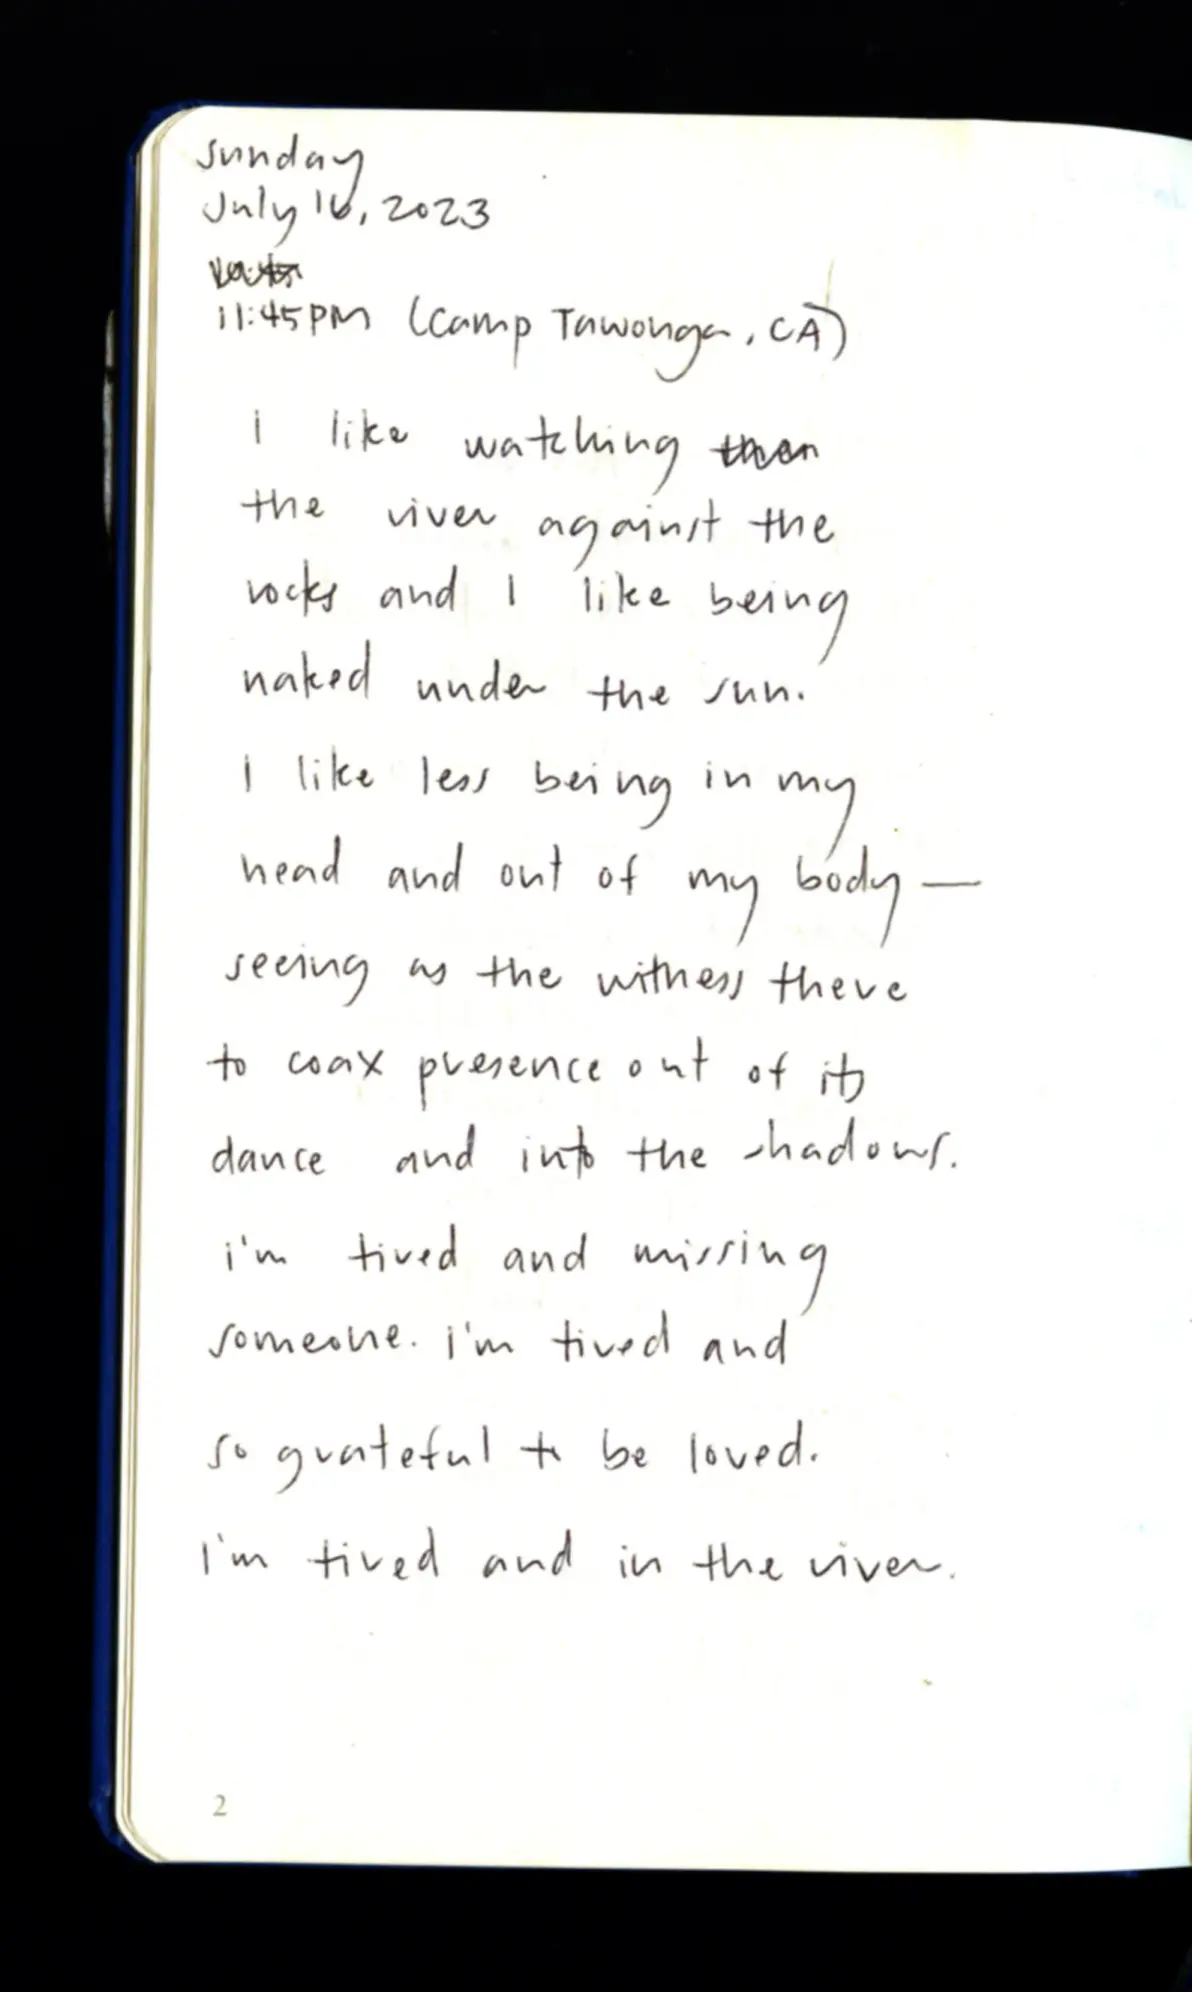 sunday
July 16, 2023
11:45PM (Camp Tawonga, CA)
I like watching
the river against the
rocks and I like being
naked under the sun.
I like less being in my
head and out of my body—
seeing as the witness there
to coax presence out of its
dance and into the shadows.
i'm tired and missing
someone. i'm tired and
so grateful to be loved.
I'm tired and in the river.
2